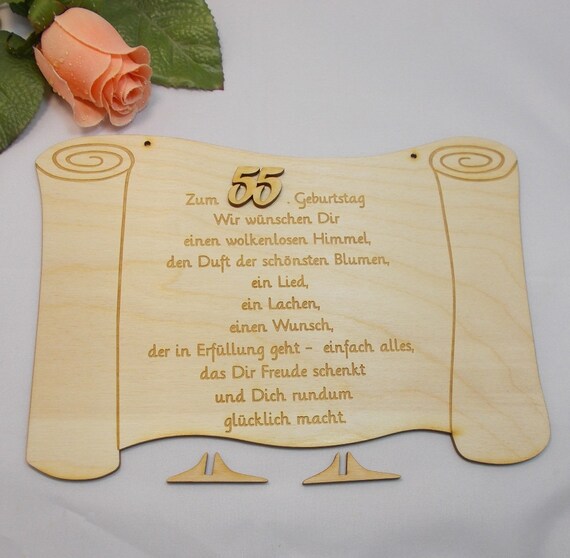 Zum 55. Geburtstag
Wir wünschen Dir
einen wolkenlosen Himmel,
den Duft der schönsten Blumen,
ein Lied,
ein Lachen,
einen Wunsch,
der in Erfüllung geht - einfach alles,
das Dir Freude schenkt
und Dich rundum
glücklich macht.